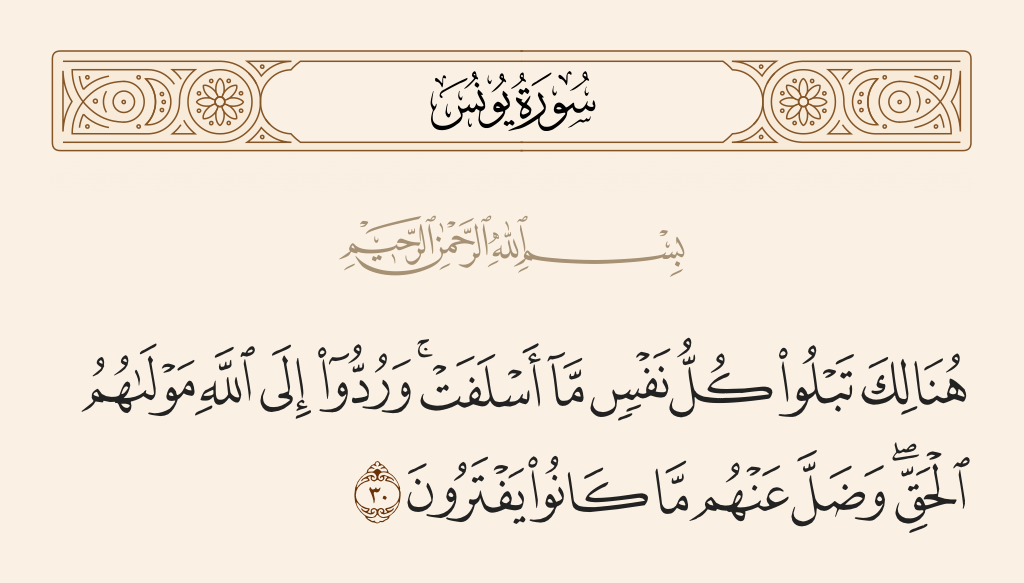 سُورَةُ يُونُسَ
بِسْمِ ٱللَّهِ ٱلرَّحْمَٰنِ ٱلرَّحِيمِ
هُنَالِكَ تَبْلُوا۟ كُلُّ نَفْسٍ مَّآ أَسْلَفَتْ ۚ وَرُدُّوٓا۟ إِلَى ٱللَّهِ مَوْلَىٰهُمُ
ٱلْحَقِّ ۖ وَضَلَّ عَنْهُم مَّا كَانُوا۟ يَفْتَرُونَ ٣٠